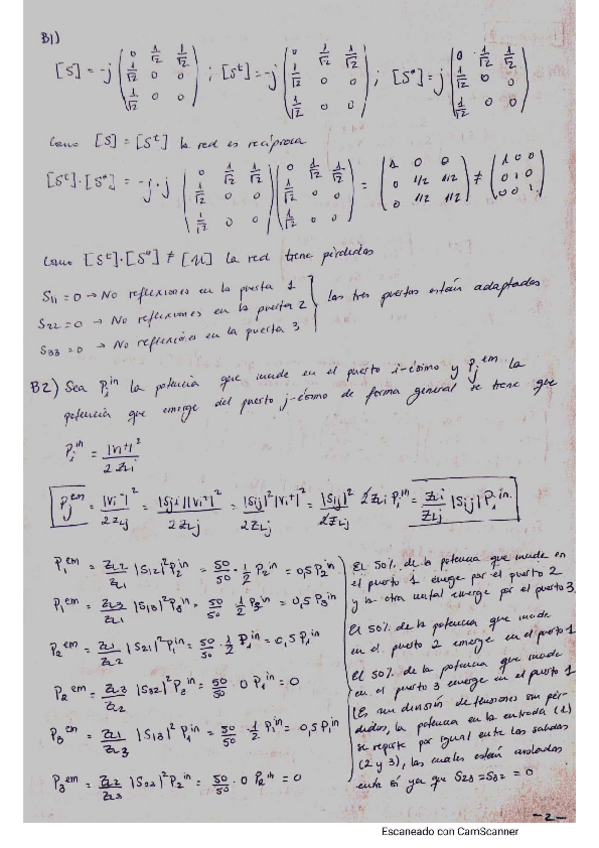 B1)
[S] = -j (0 1/√2 1/√2; 1/√2 0 0; 1/√2 0 0) ; [Sᵗ] = -j (0 1/√2 1/√2; 1/√2 0 0; 1/√2 0 0) ; [S*] = j (0 1/√2 1/√2; 1/√2 0 0; 1/√2 0 0)
Como [S] = [Sᵗ] la red es recíproca
[Sᵗ]·[S*] = -j·j (0 1/√2 1/√2; 1/√2 0 0; 1/√2 0 0)(0 1/√2 1/√2; 1/√2 0 0; 1/√2 0 0) = (1 0 0; 0 1/2 1/2; 0 1/2 1/2) ≠ (1 0 0; 0 1 0; 0 0 1)
Como [Sᵗ]·[S*] ≠ [U] la red tiene pérdidas
S11 = 0 → No reflexiones en la puerta 1
S22 = 0 → No reflexiones en la puerta 2
S33 = 0 → No reflexiones en la puerta 3
los tres puertos están adaptados
B2) Sea Pᵢⁱⁿ la potencia que incide en el puerto i-ésimo y Pⱼᵉᵐ la
potencia que emerge del puerto j-ésimo de forma general se tiene que
Pᵢⁱⁿ = |Vi⁺|² / 2 Z₀i
Pⱼᵉᵐ = |Vi⁻|² / 2Z₀j = |Sji||Vi⁺|² / 2Z₀j = |Sij|²|Vi⁺|² / 2Z₀j = |Sij|² 2Z₀i Pᵢⁱⁿ / 2Z₀j = Z₀i / Z₀j |Sij| Pᵢⁱⁿ
P1ᵉᵐ = Z₀2/Z₀1 |S12|² P2ⁱⁿ = 50/50 · 1/2 P2ⁱⁿ = 0,5 P2ⁱⁿ
P1ᵉᵐ = Z₀3/Z₀1 |S13|² P3ⁱⁿ = 50/50 · 1/2 P3ⁱⁿ = 0,5 P3ⁱⁿ
P2ᵉᵐ = Z₀1/Z₀2 |S21|² P1ⁱⁿ = 50/50 · 1/2 P1ⁱⁿ = 0,5 P1ⁱⁿ
P2ᵉᵐ = Z₀3/Z₀2 |S32|² P3ⁱⁿ = 50/50 · 0 P1ⁱⁿ = 0
P3ᵉᵐ = Z₀1/Z₀3 |S13|² P1ⁱⁿ = 50/50 · 1/2 P1ⁱⁿ = 0,5 P1ⁱⁿ
P3ᵉᵐ = Z₀2/Z₀3 |S32|² P2ⁱⁿ = 50/50 · 0 P2ⁱⁿ = 0
El 50% de la potencia que incide en
el puerto 1 emerge por el puerto 2
y la otra mitad emerge por el puerto 3
El 50% de la potencia que incide
en el puerto 2 emerge en el puerto 1
El 50% de la potencia que incide
en el puerto 3 emerge en el puerto 1
Es un divisor de tensiones sin pér-
didas, la potencia en la entrada (1)
se reparte por igual entre las salidas
(2 y 3), las cuales están aisladas
entre sí ya que S23 = S32 = 0
-2-
Escaneado con CamScanner